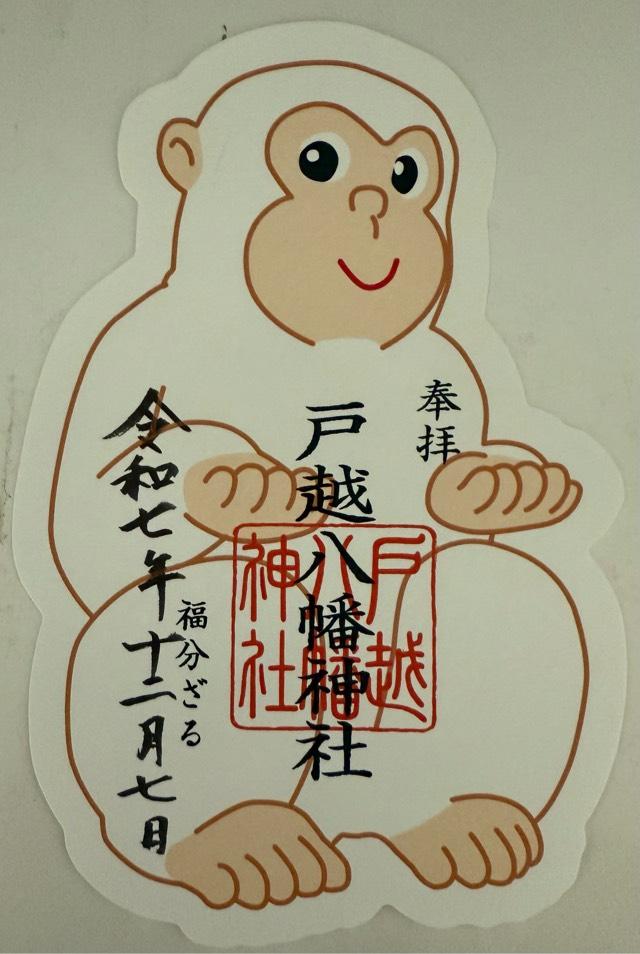 奉拝
戸越八幡神社
戸越
八幡
神社
福分ざる
令和七年十二月七日